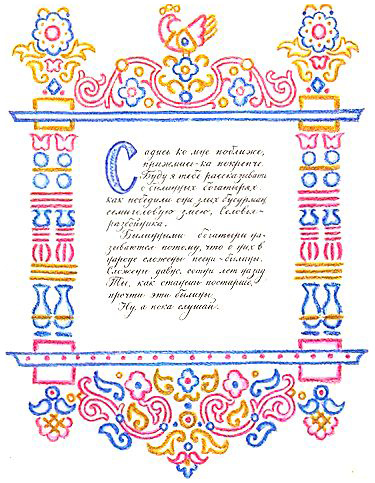 Садись ко мне поближе,
прижмись-ка покрепче.
Буду я тебе рассказывать
о былинных богатырях.
как победили они злых бусурман,
семиголовую змею, Соловья-
разбойника.
Былинными богатыри на-
зываются потому, что о них в
народе сложены песни-былины.
Сложены давно, сотни лет назад
Ты, как станешь постарше,
прочти эти былины.
Ну, а пока слушай.